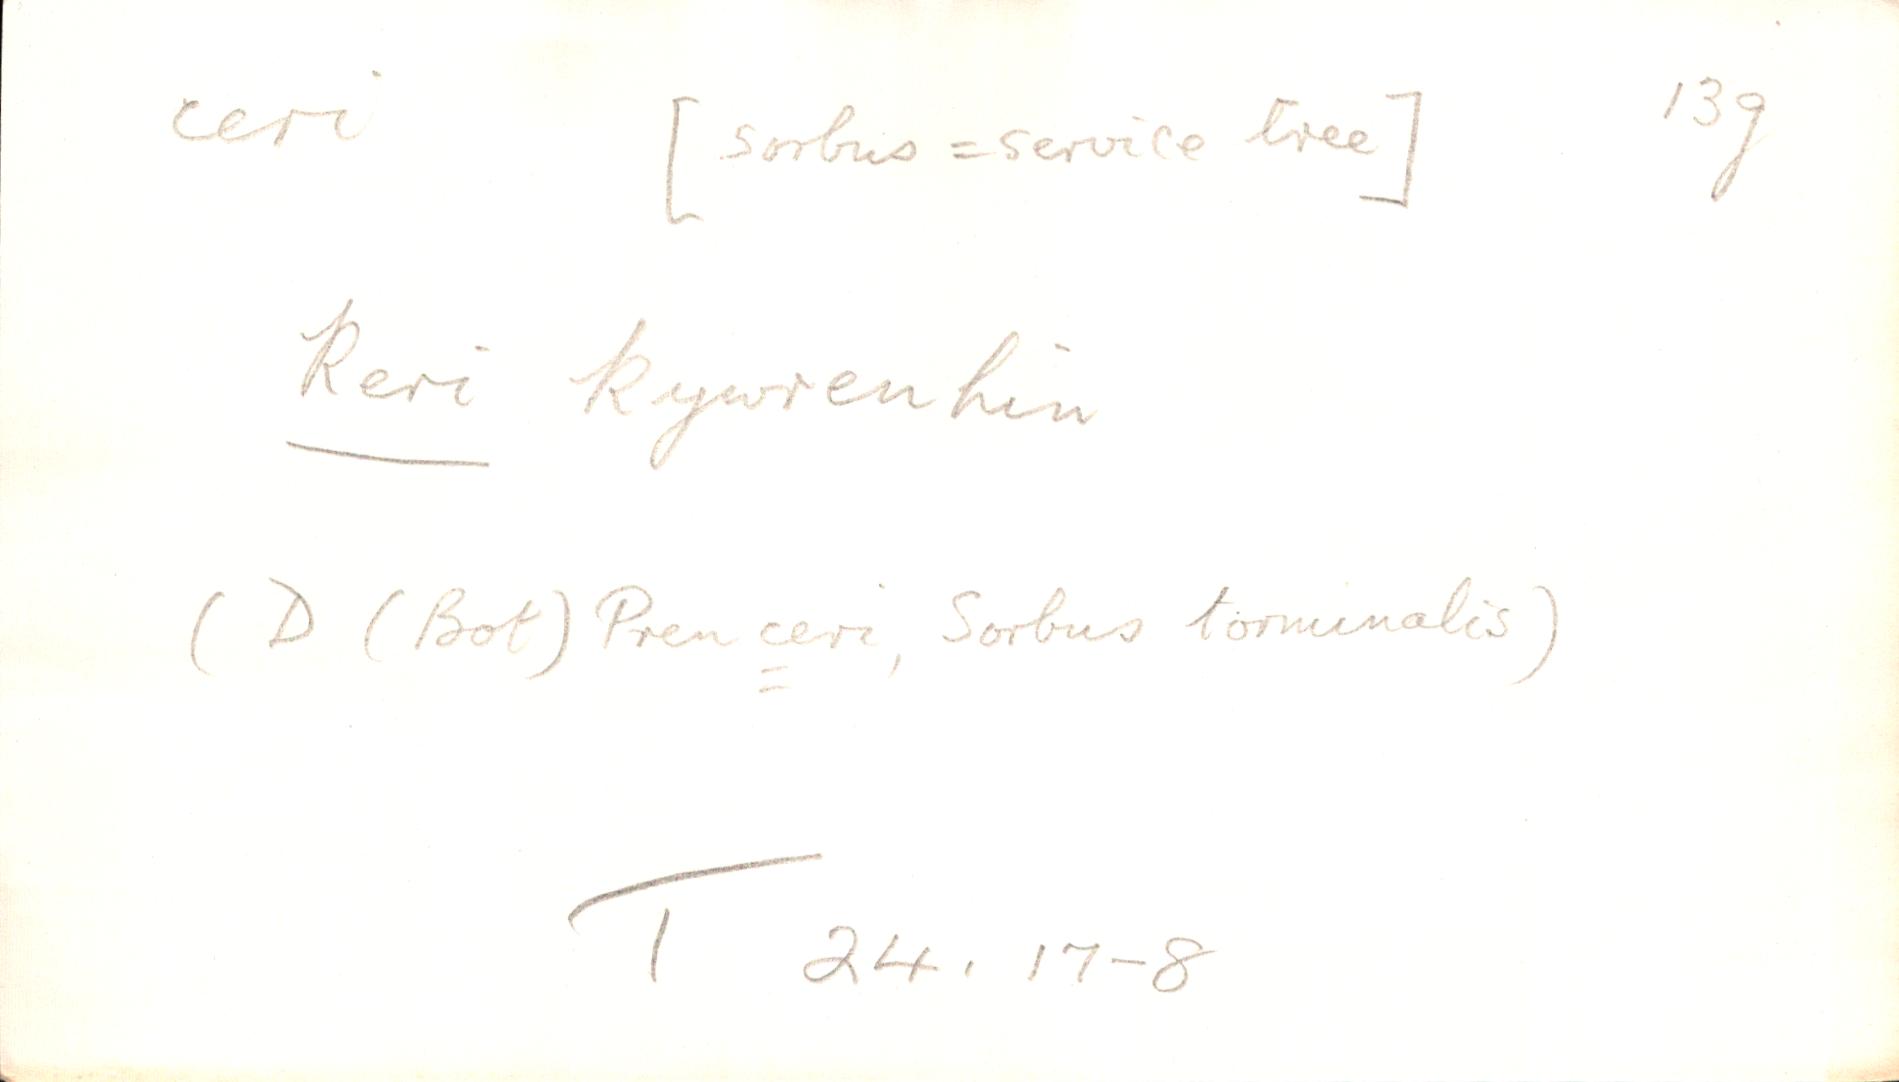 ceri [sorbus = service tree] 13g
Keri kywrenhin
(D (Bot) Pren ceri, Sorbus torminalis)
T 24. 17-8